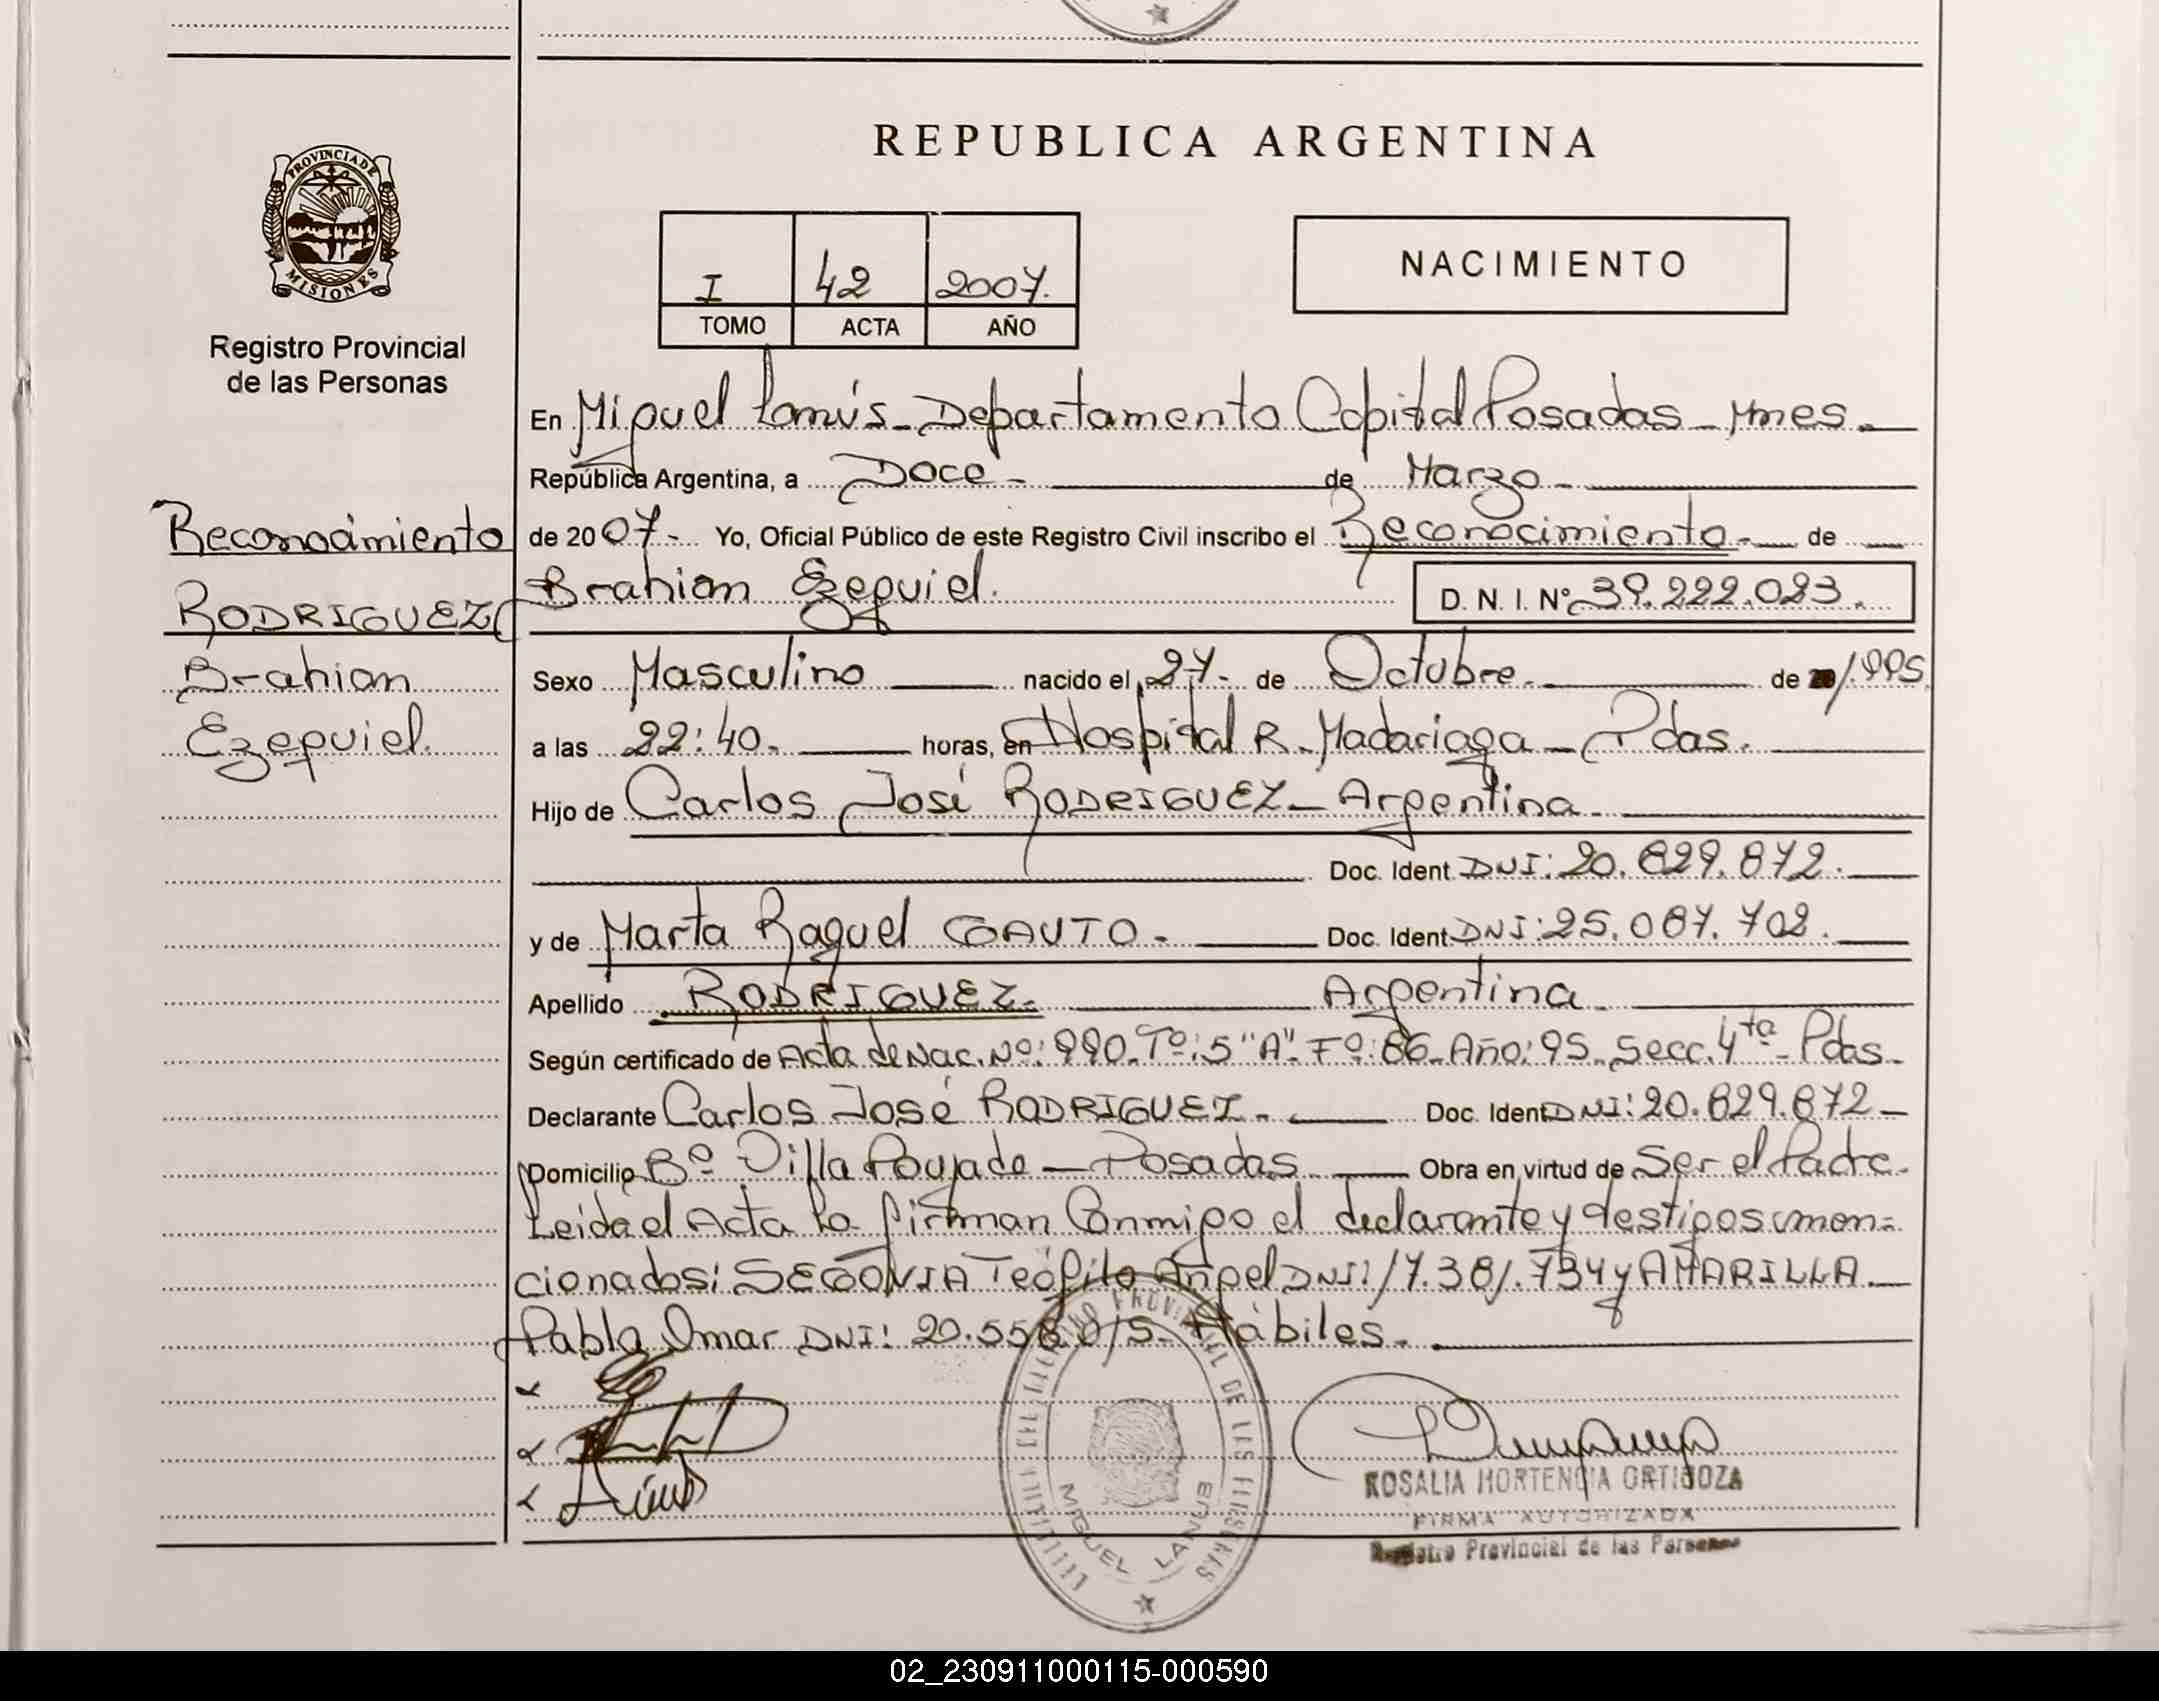 REPUBLICA ARGENTINA
PROVINCIA DE
MISIONES
Registro Provincial
de las Personas
I 42 2007.
TOMO ACTA AÑO
NACIMIENTO
Reconocimiento
RODRIGUEZ
Brahian
Ezequiel.
En Miguel Lanús - Departamento Capital Posadas - Mnes. -
República Argentina, a Doce - de Marzo -
de 2007 - Yo, Oficial Público de este Registro Civil inscribo el Reconocimiento - de
Brahian Ezequiel. D. N. I. Nº 39.222.023.
Sexo Masculino nacido el 27 - de Octubre. de 1.995
a las 22:40. horas, en Hospital R. Madariaga - Pdas.
Hijo de Carlos José RODRIGUEZ - Argentina -
Doc. Ident DNI: 20.829.872.
y de Marta Raquel GAUTO - Doc. Ident DNI: 25.087.702.
Apellido RODRIGUEZ - Argentina
Según certificado de Acta de Nac. Nº: 990 - Tº: 5 "A" - Fº: 86 - Año: 95 - Secc. 4ta - Pdas -
Declarante Carlos José RODRIGUEZ - Doc. Ident DNI: 20.829.872 -
Domicilio Bº Villa Poujade - Posadas Obra en virtud de Ser el Padre -
Leida el Acta la firman Conmigo el declarante y testigos men=
cionados: SEGOVIA Teófilo Angel DNI: 17.381.734 y AMARILLA
Pablo Omar DNI: 20.558.015 - Hábiles -
ROSALIA HORTENCIA ORTIGOZA
FIRMA AUTORIZADA
Registro Provincial de las Personas
PROVINCIAL DE LAS PERSONAS
MIGUEL LANUS
02_230911000115-000590